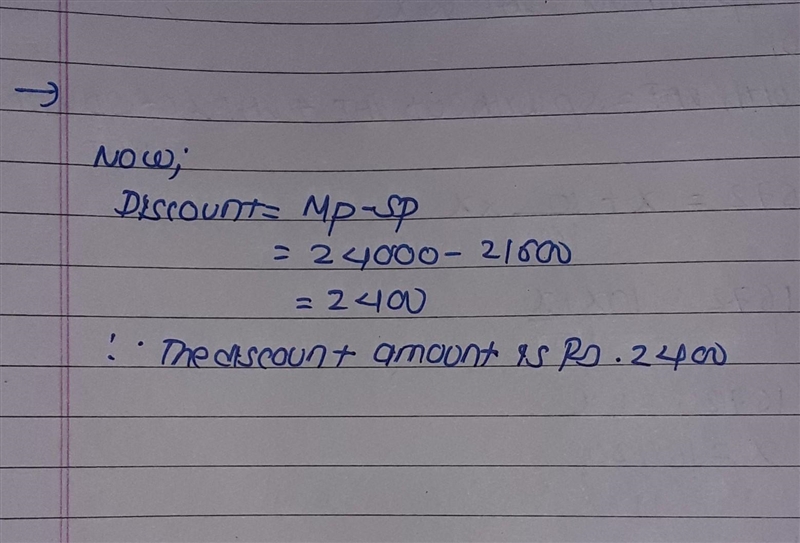 →
Now;
Discount = Mp - SP
= 24000 - 21600
= 2400
∴ The discount amount is Rs. 2400